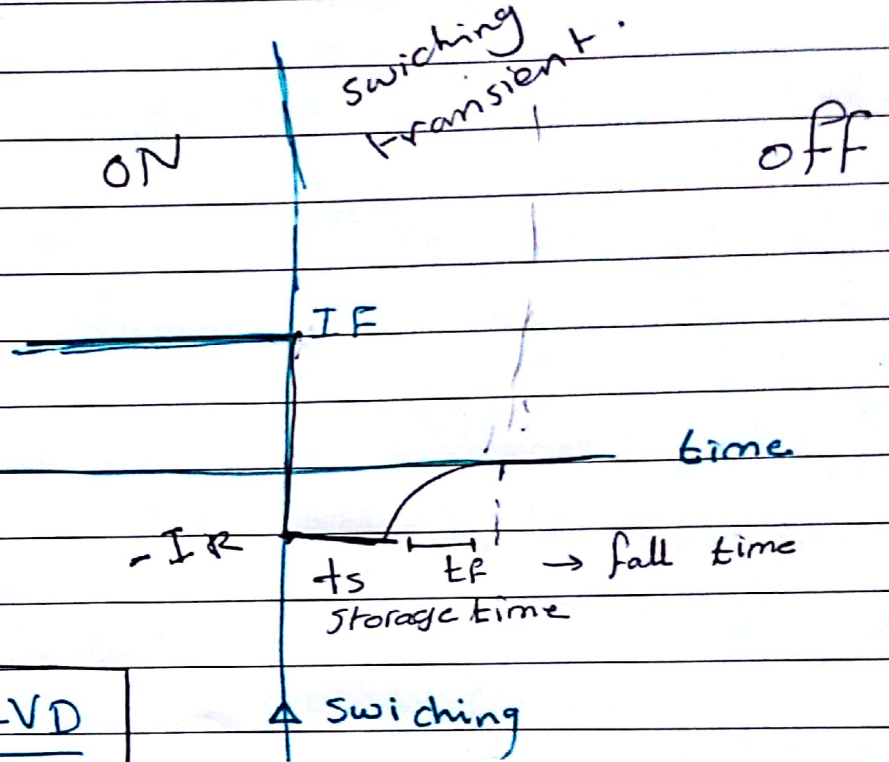 swiching
transient.
ON
off
IF
time
-IR
ts
tf → fall time
storage time
-VD
swiching